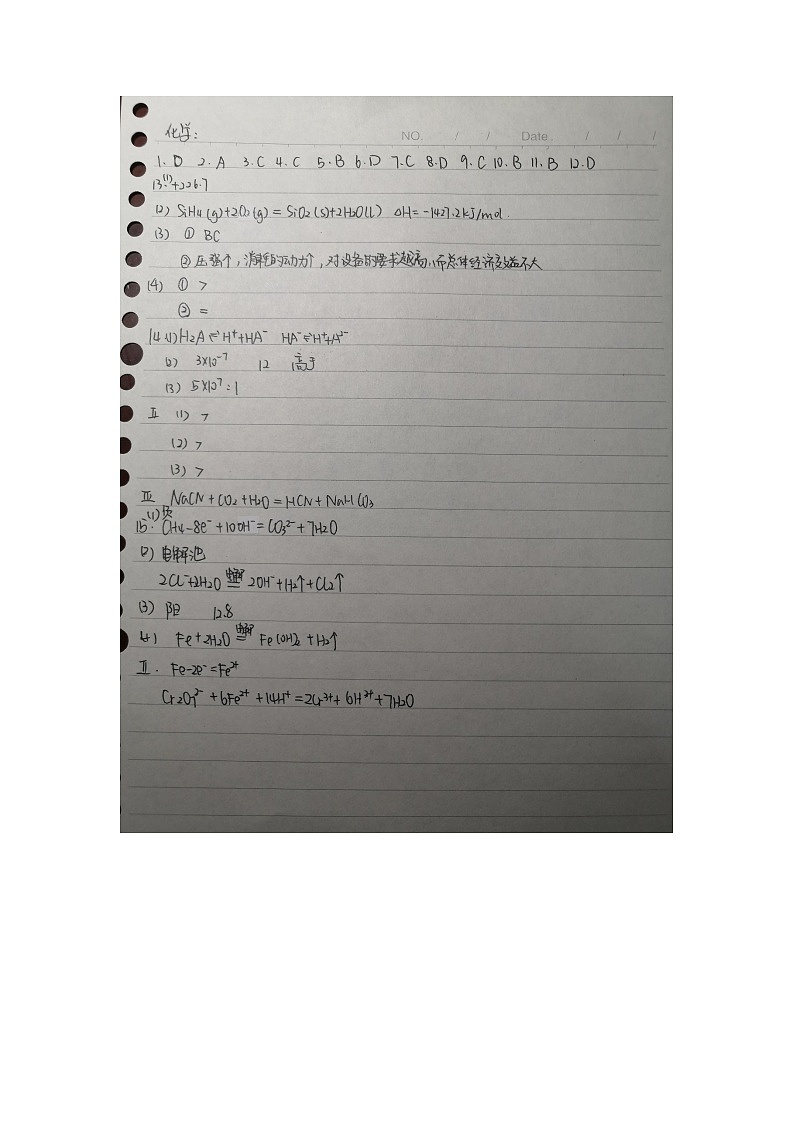 化学:
NO. / / Date. / / /
1、D 2、A 3、C 4、C 5、B 6、D 7、C 8、D 9、C 10、B 11、B 12、D
13.(1)+226.7
(2) SiH4(g)+2O2(g)=SiO2(s)+2H2O(l) ΔH=-1427.2kJ/mol.
(3) ① BC
② 压强个,消耗的动力个,对设备的要求越高,而总体经济效益不大
(4) ① >
② =
14.(1)H2A⇌H⁺+HA⁻ HA⁻⇌H⁺+A²⁻
(2) 3×10⁻⁷ 12 高于
(3) 5×10⁷:1
Ⅱ (1) >
(2) >
(3) >
Ⅲ NaCN+CO2+H2O=HCN+NaHCO3
(1)负
15. CH4-8e⁻+10OH⁻=CO3²⁻+7H2O
(2) 电解池
2Cl⁻+2H2O 电解 = 2OH⁻+H2↑+Cl2↑
(3) 阳 12.8
(4) Fe+2H2O 电解 = Fe(OH)2+H2↑
Ⅱ. Fe-2e⁻=Fe²⁺
Cr2O7²⁻+6Fe²⁺+14H⁺=2Cr³⁺+6H³⁺+7H2O